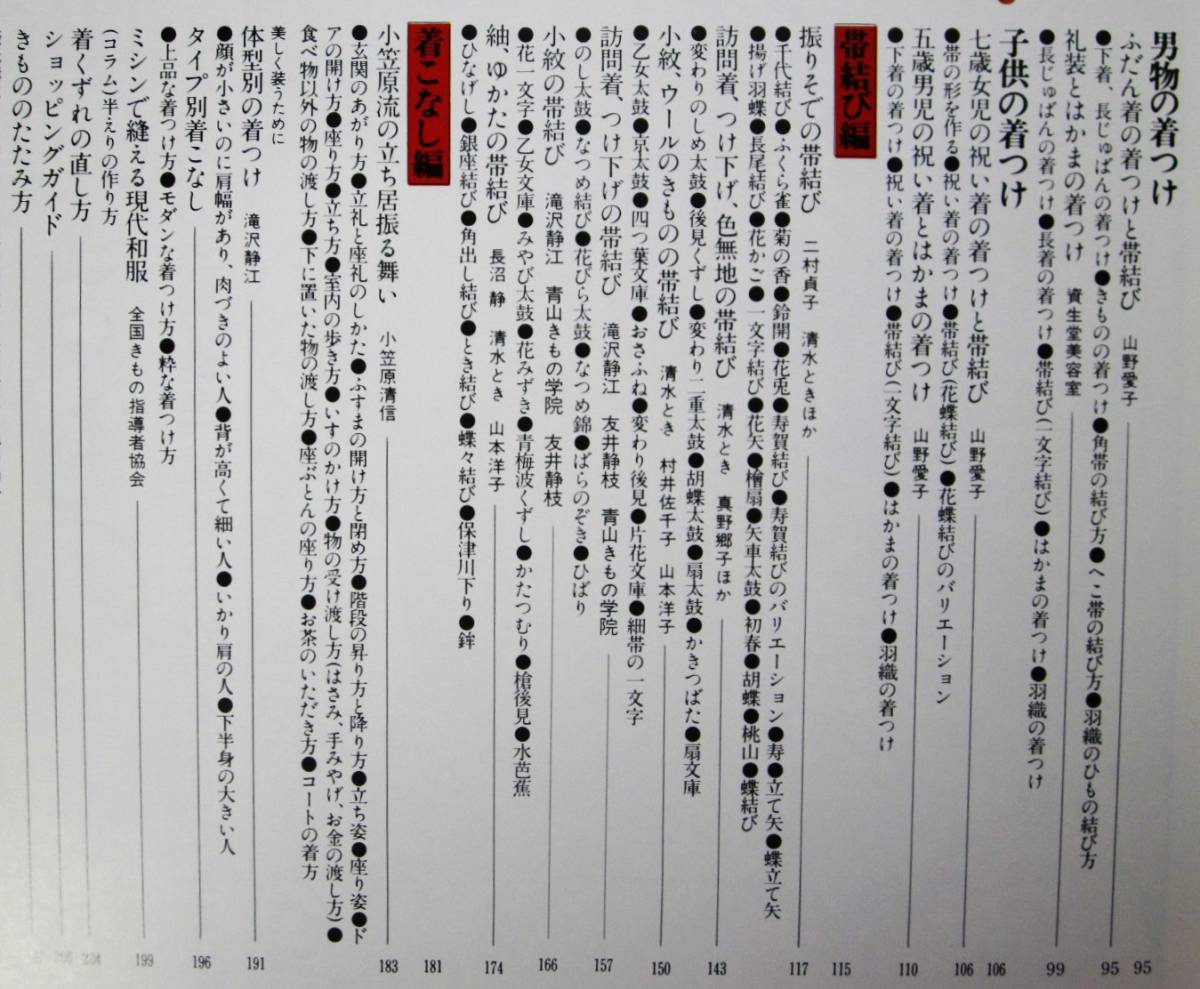 男物の着つけ 95
ふだん着の着つけと帯結び 山野愛子 95
●下着、長じゅばんの着つけ●きものの着つけ●角帯の結び方●へこ帯の結び方●羽織のひもの結び方
礼装とはかまの着つけ 資生堂美容室 99
●長じゅばんの着つけ●長着の着つけ●帯結び(一文字結び)●はかまの着つけ●羽織の着つけ
子供の着つけ 106
七歳女児の祝い着の着つけと帯結び 山野愛子 106
●帯の形を作る●祝い着の着つけ●帯結び(花蝶結び)●花蝶結びのバリエーション
五歳男児の祝い着とはかまの着つけ 山野愛子 110
●下着の着つけ●祝い着の着つけ●帯結び(一文字結び)●はかまの着つけ●羽織の着つけ
帯結び編 115
振りそでの帯結び 二村貞子 清水ときほか 117
●千代結び●ふくら雀●菊の香●鈴開●花兎●寿賀結び●寿賀結びのバリエーション●寿●立て矢●蝶立て矢
●揚げ羽蝶●長尾結び●花かご●一文字結び●花矢●檜扇●矢車太鼓●初春●胡蝶●桃山●蝶結び
訪問着、つけ下げ、色無地の帯結び 清水とき 真野郷子ほか 143
●変わりのしめ太鼓●後見くずし●変わり二重太鼓●胡蝶太鼓●扇太鼓●かきつばた●扇文庫
小紋、ウールのきものの帯結び 清水とき 村井佐千子 山本洋子 150
●乙女太鼓●京太鼓●四つ葉文庫●おさふね●変わり後見●片花文庫●細帯の一文字
訪問着、つけ下げの帯結び 滝沢静江 友井静枝 青山きもの学院 157
●のし太鼓●なつめ結び●花びら太鼓●なつめ錦●ばらのぞき●ひばり
小紋の帯結び 滝沢静江 青山きもの学院 友井静枝 166
●花一文字●乙女文庫●みやび太鼓●花みずき●青梅波くずし●かたつむり●槍後見●水芭蕉
紬、ゆかたの帯結び 長沼静 清水とき 山本洋子 174
●ひなげし●銀座結び●角出し結び●とき結び●蝶々結び●保津川下り●鉾
着こなし編 181
小笠原流の立ち居振る舞い 小笠原清信 183
●玄関のあがり方●立礼と座礼のしかた●ふすまの開け方と閉め方●階段の昇り方と降り方●立ち姿●座り姿●ド
アの開け方●座り方●立ち方●室内の歩き方●いすのかけ方●物の受け渡し方(はさみ、手みやげ、お金の渡し方)●
食べ物以外の物の渡し方●下に置いた物の渡し方●座ぶとんの座り方●お茶のいただき方●コートの着方
美しく装うために
体型別の着つけ 滝沢静江 191
●顔が小さいのに肩幅があり、肉づきのよい人●背が高くて細い人●いかり肩の人●下半身の大きい人
タイプ別着こなし 196
●上品な着つけ方●モダンな着つけ方●粋な着つけ方
ミシンで縫える現代和服 全国きもの指導者協会 199
(コラム)半えりの作り方
着くずれの直し方 204
ショッピングガイド
きもののたたみ方